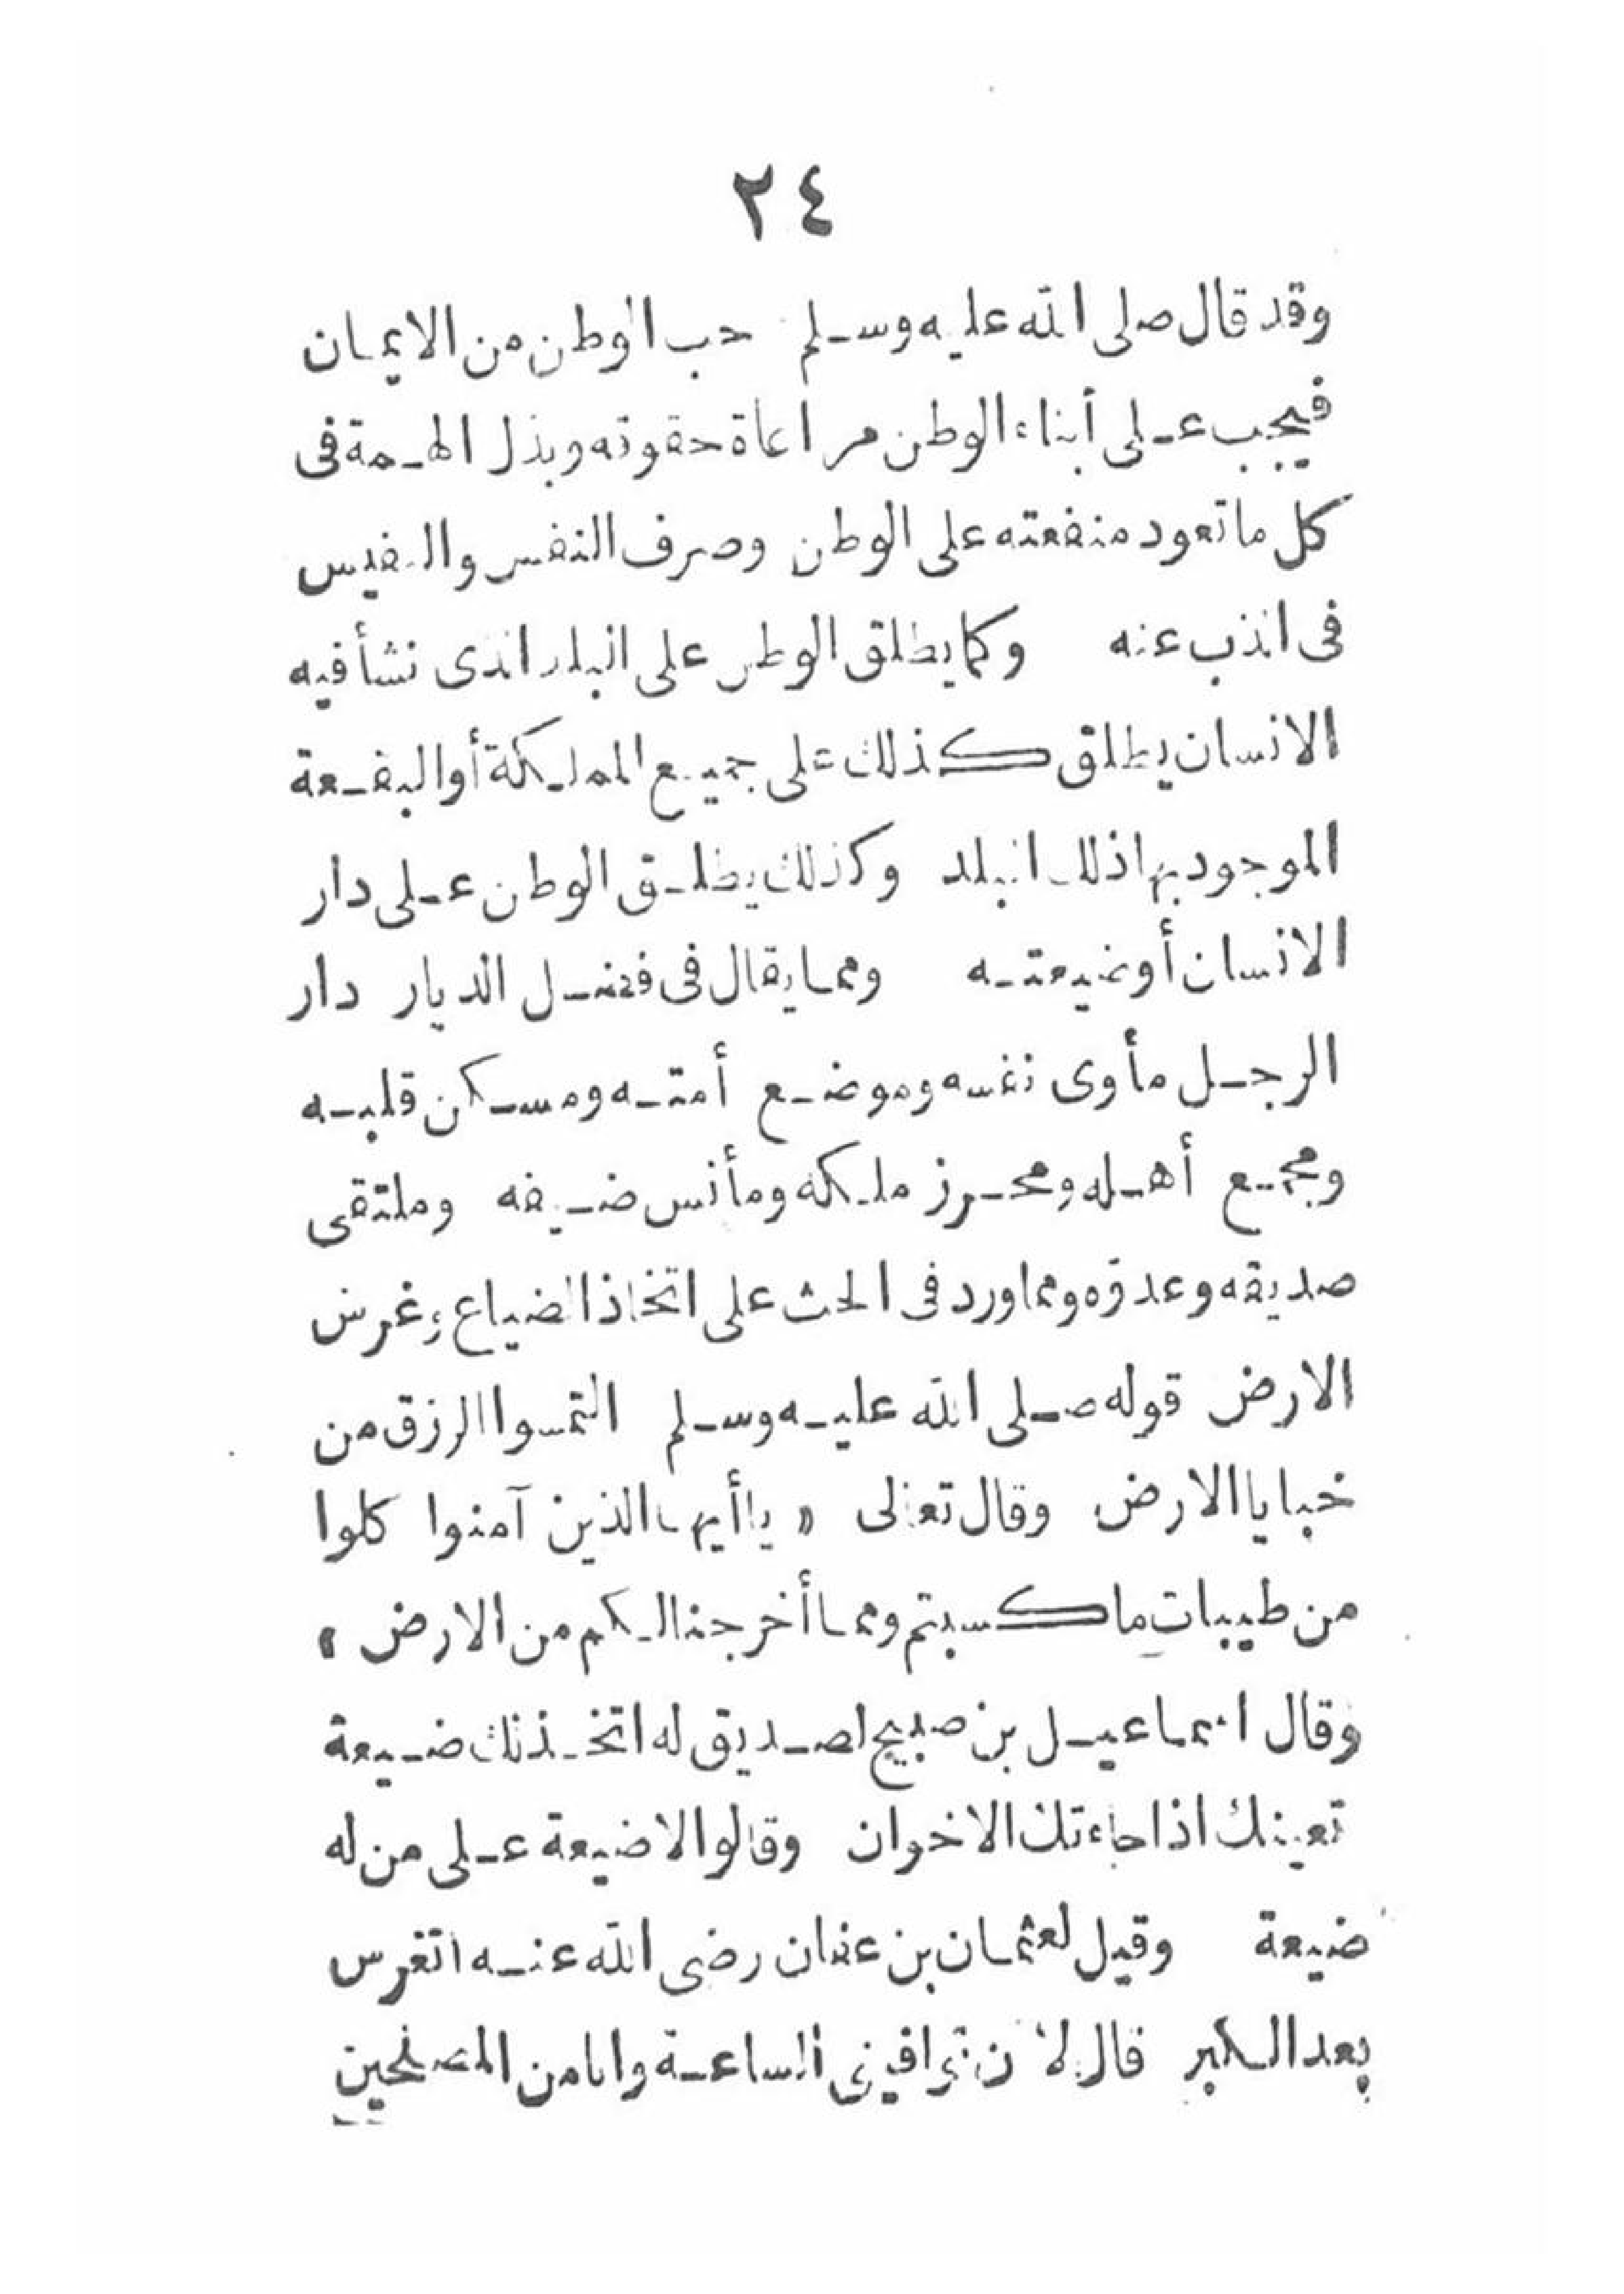 ٢٤
وقد قال صلى الله عليه وسلم حب الوطن من الايمان
فيجب على أبناء الوطن مراعاة حقوقه وبذل الهمة فى
كل ما تعود منفعته على الوطن وصرف النفس والنفيس
فى الذب عنه وكما يطلق الوطن على البلد الذى نشأ فيه
الانسان يطلق كذلك على جميع المملكة أو البقعة
الموجود بها ذلك البلد وكذلك يطلق الوطن على دار
الانسان أو ضيعته ومما يقال فى فضل الديار دار
الرجل مأوى نفسه وموضع أمته ومسكن قلبه
ومجمع أهله ومحرز ملكه ومأنس ضيفه وملتقى
صديقه وعدوّه ومما ورد فى الحث على اتخاذ الضياع وغرس
الارض قوله صلى الله عليه وسلم التمسوا الرزق من
خبايا الارض وقال تعالى « يا أيها الذين آمنوا كلوا
من طيبات ما كسبتم ومما أخرجنا لكم من الارض »
وقال اسماعيل بن صبيح لصديق له اتخذ لك ضيعة
تعينك اذا جاءتك الاخوان وقالوا لا ضيعة على من له
ضيعة وقيل لعثمان بن عفان رضى الله عنه اتغرس
بعد الكبر قال لأن توافينى الساعة وانا من المصلحين